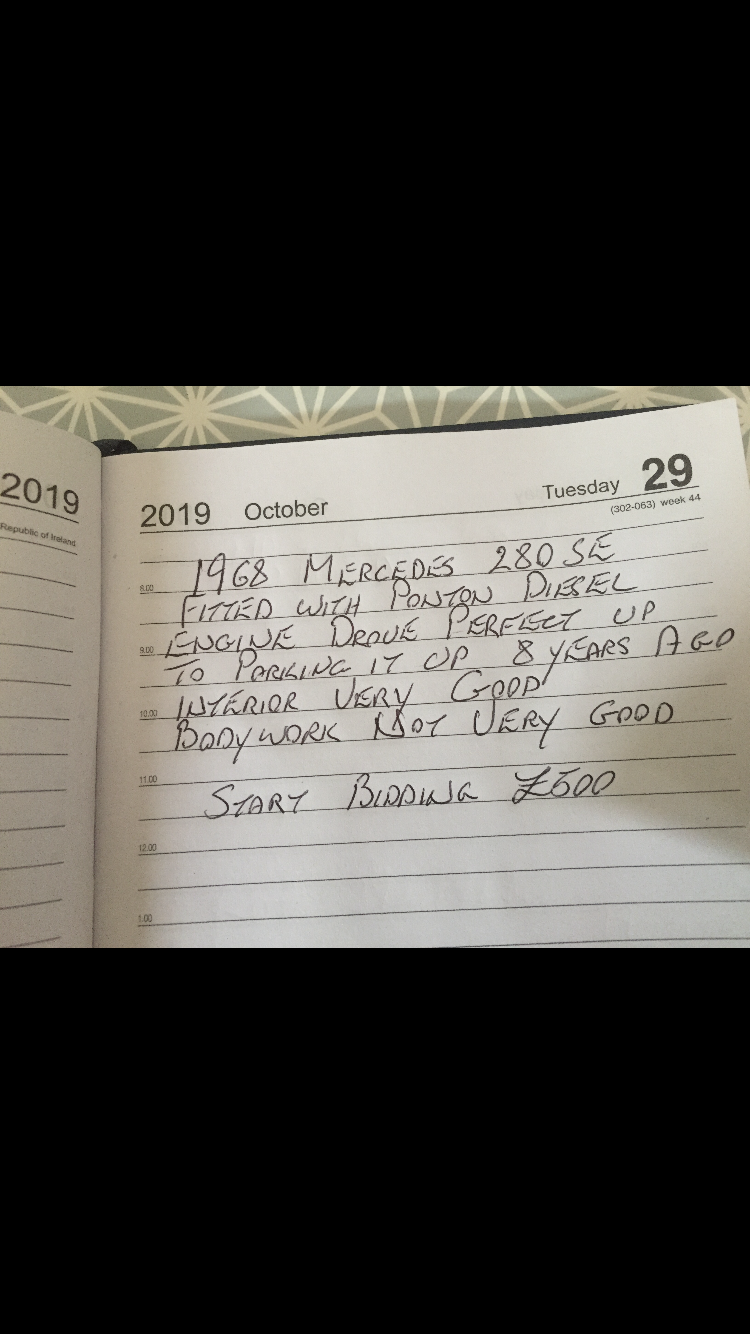 2019
Republic of Ireland
2019 October Tuesday 29
(302-063) week 44
1968 MERCEDES 280 SE
8.00
FITTED WITH PONTON DIESEL
ENGINE DROVE PERFECT UP
9.00
TO PARKING IT UP 8 YEARS AGO
INTERIOR VERY GOOD
10.00
BODYWORK NOT VERY GOOD
11.00
START BIDDING £500
12.00
1.00